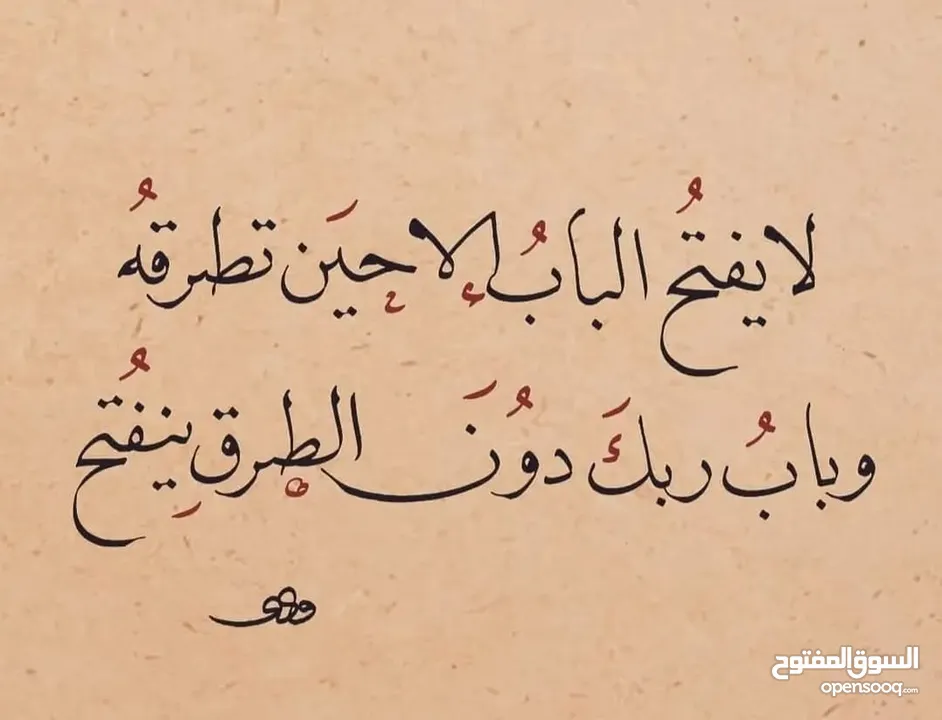 لا يفتحُ البابُ إلا حينَ تطرقهُ
وبابُ ربكَ دونَ الطرقِ ينفتحُ
السوق المفتوح
opensooq.com